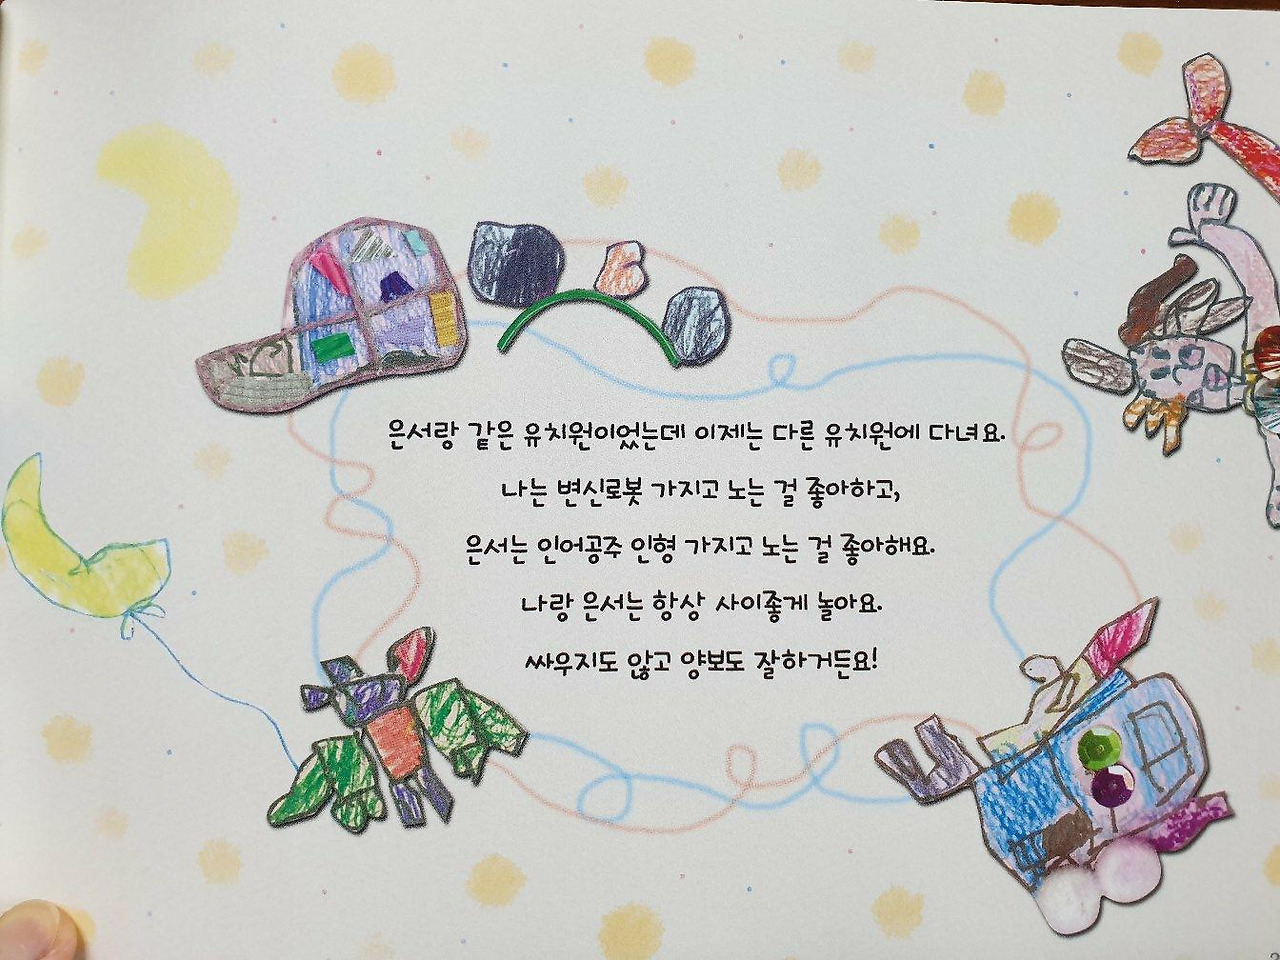 은서랑 같은 유치원이었는데 이제는 다른 유치원에 다녀요.
나는 변신로봇 가지고 노는 걸 좋아하고,
은서는 인어공주 인형 가지고 노는 걸 좋아해요.
나랑 은서는 항상 사이좋게 놀아요.
싸우지도 않고 양보도 잘하거든요!